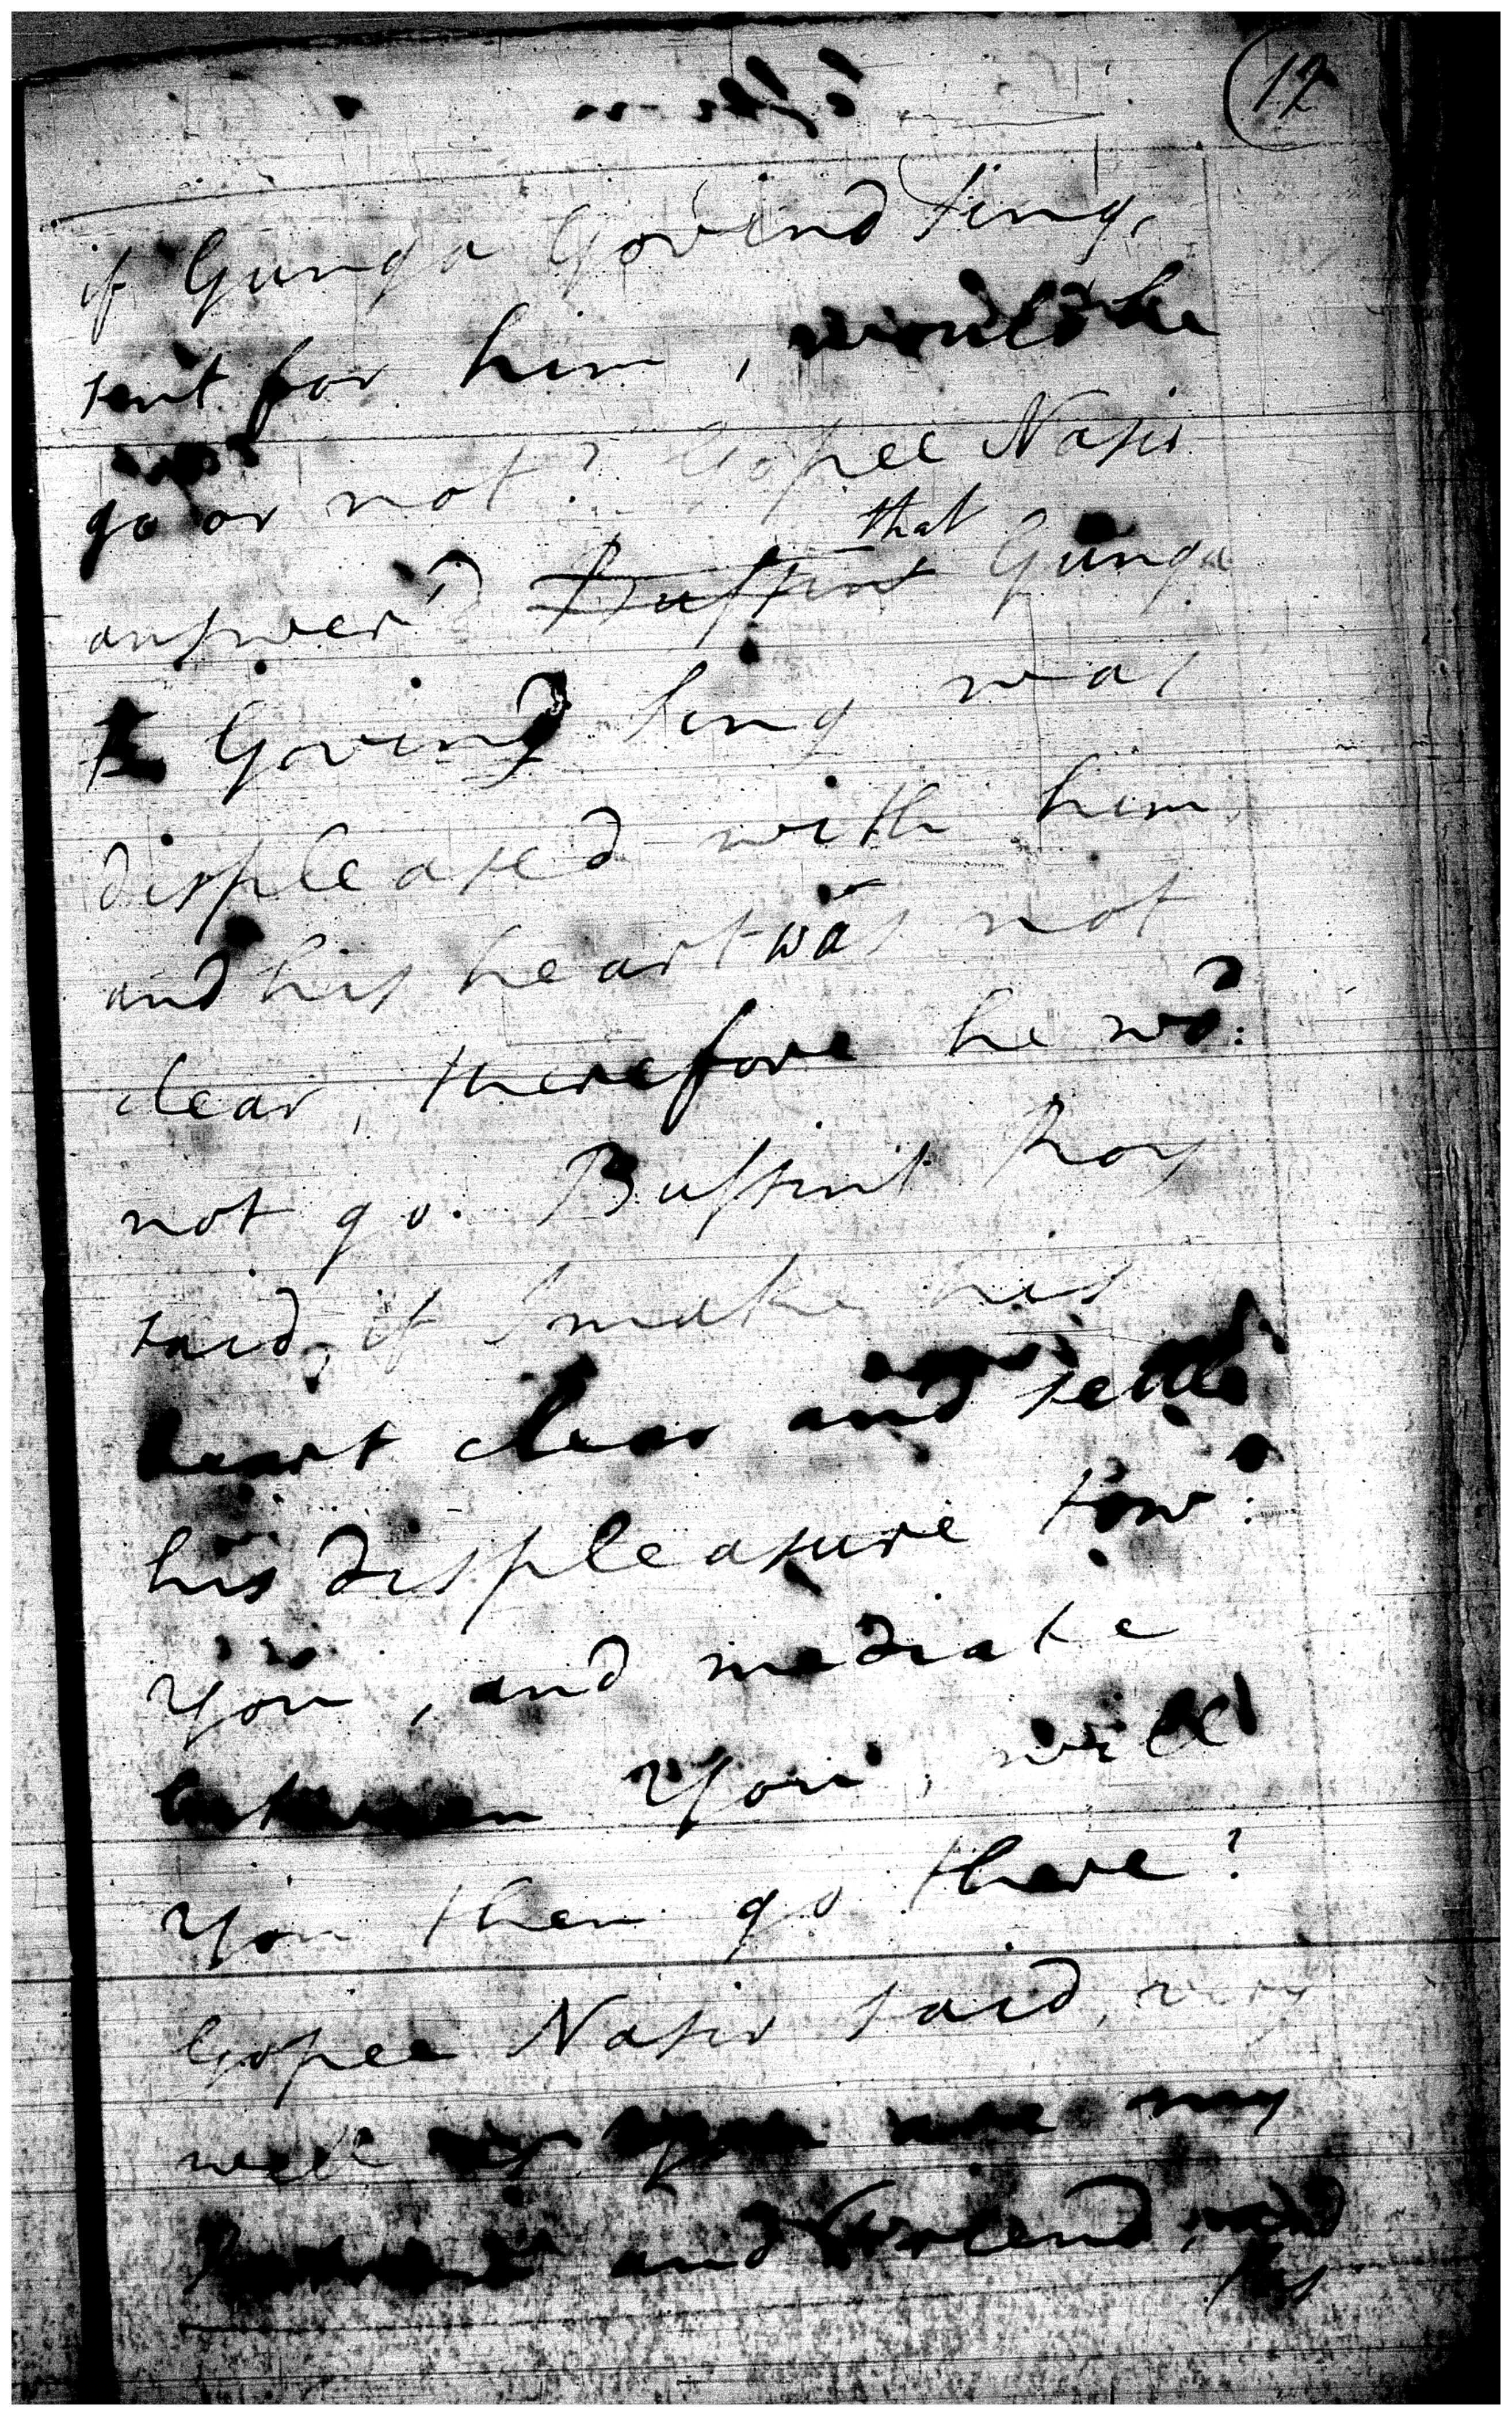 17
if Gunga Govind Sing,
sent for him, would he
go or not? Gopee Nasir
answer'd Bussunt that Gunga
Govind Sing was
displeased with him
and his heart was not
clear, therefore he wd:
not go. Bussunt Roy
said, if I make his
heart clear and settle
his displeasure tow:
you, and mediate
between you, will
you then go there?
Gopee Nasir said, very
well as you are my
and Friend,